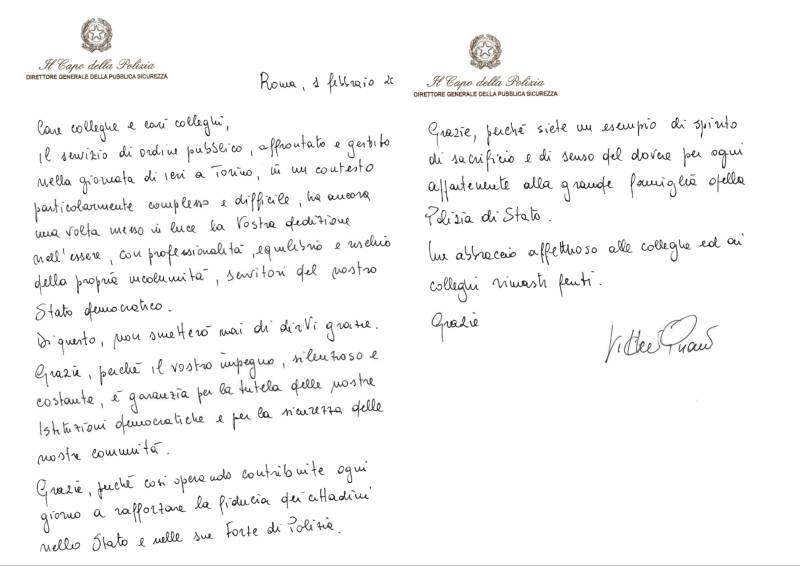 Il Capo della Polizia
DIRETTORE GENERALE DELLA PUBBLICA SICUREZZA
Roma, 1 febbraio 26
Care colleghe e cari colleghi,
il servizio di ordine pubblico, affrontato e gestito
nella giornata di ieri a Torino, in un contesto
particolarmente complesso e difficile, ha ancora
una volta messo in luce la Vostra dedizione
nell'essere, con professionalità, equilibrio e rischio
della propria incolumità, servitori del nostro
Stato democratico.
Di questo, non smetterò mai di dirVi grazie.
Grazie, perché il vostro impegno, silenzioso e
costante, è garanzia per la tutela delle nostre
Istituzioni democratiche e per la sicurezza delle
nostre comunità.
Grazie, perché così operando contribuite ogni
giorno a rafforzare la fiducia dei cittadini
nello Stato e nelle sue Forze di Polizia.
Il Capo della Polizia
DIRETTORE GENERALE DELLA PUBBLICA SICUREZZA
Grazie, perché siete un esempio di spirito
di sacrificio e di senso del dovere per ogni
appartenente alla grande famiglia della
Polizia di Stato.
Un abbraccio affettuoso alle colleghe ed ai
colleghi rimasti feriti.
Grazie